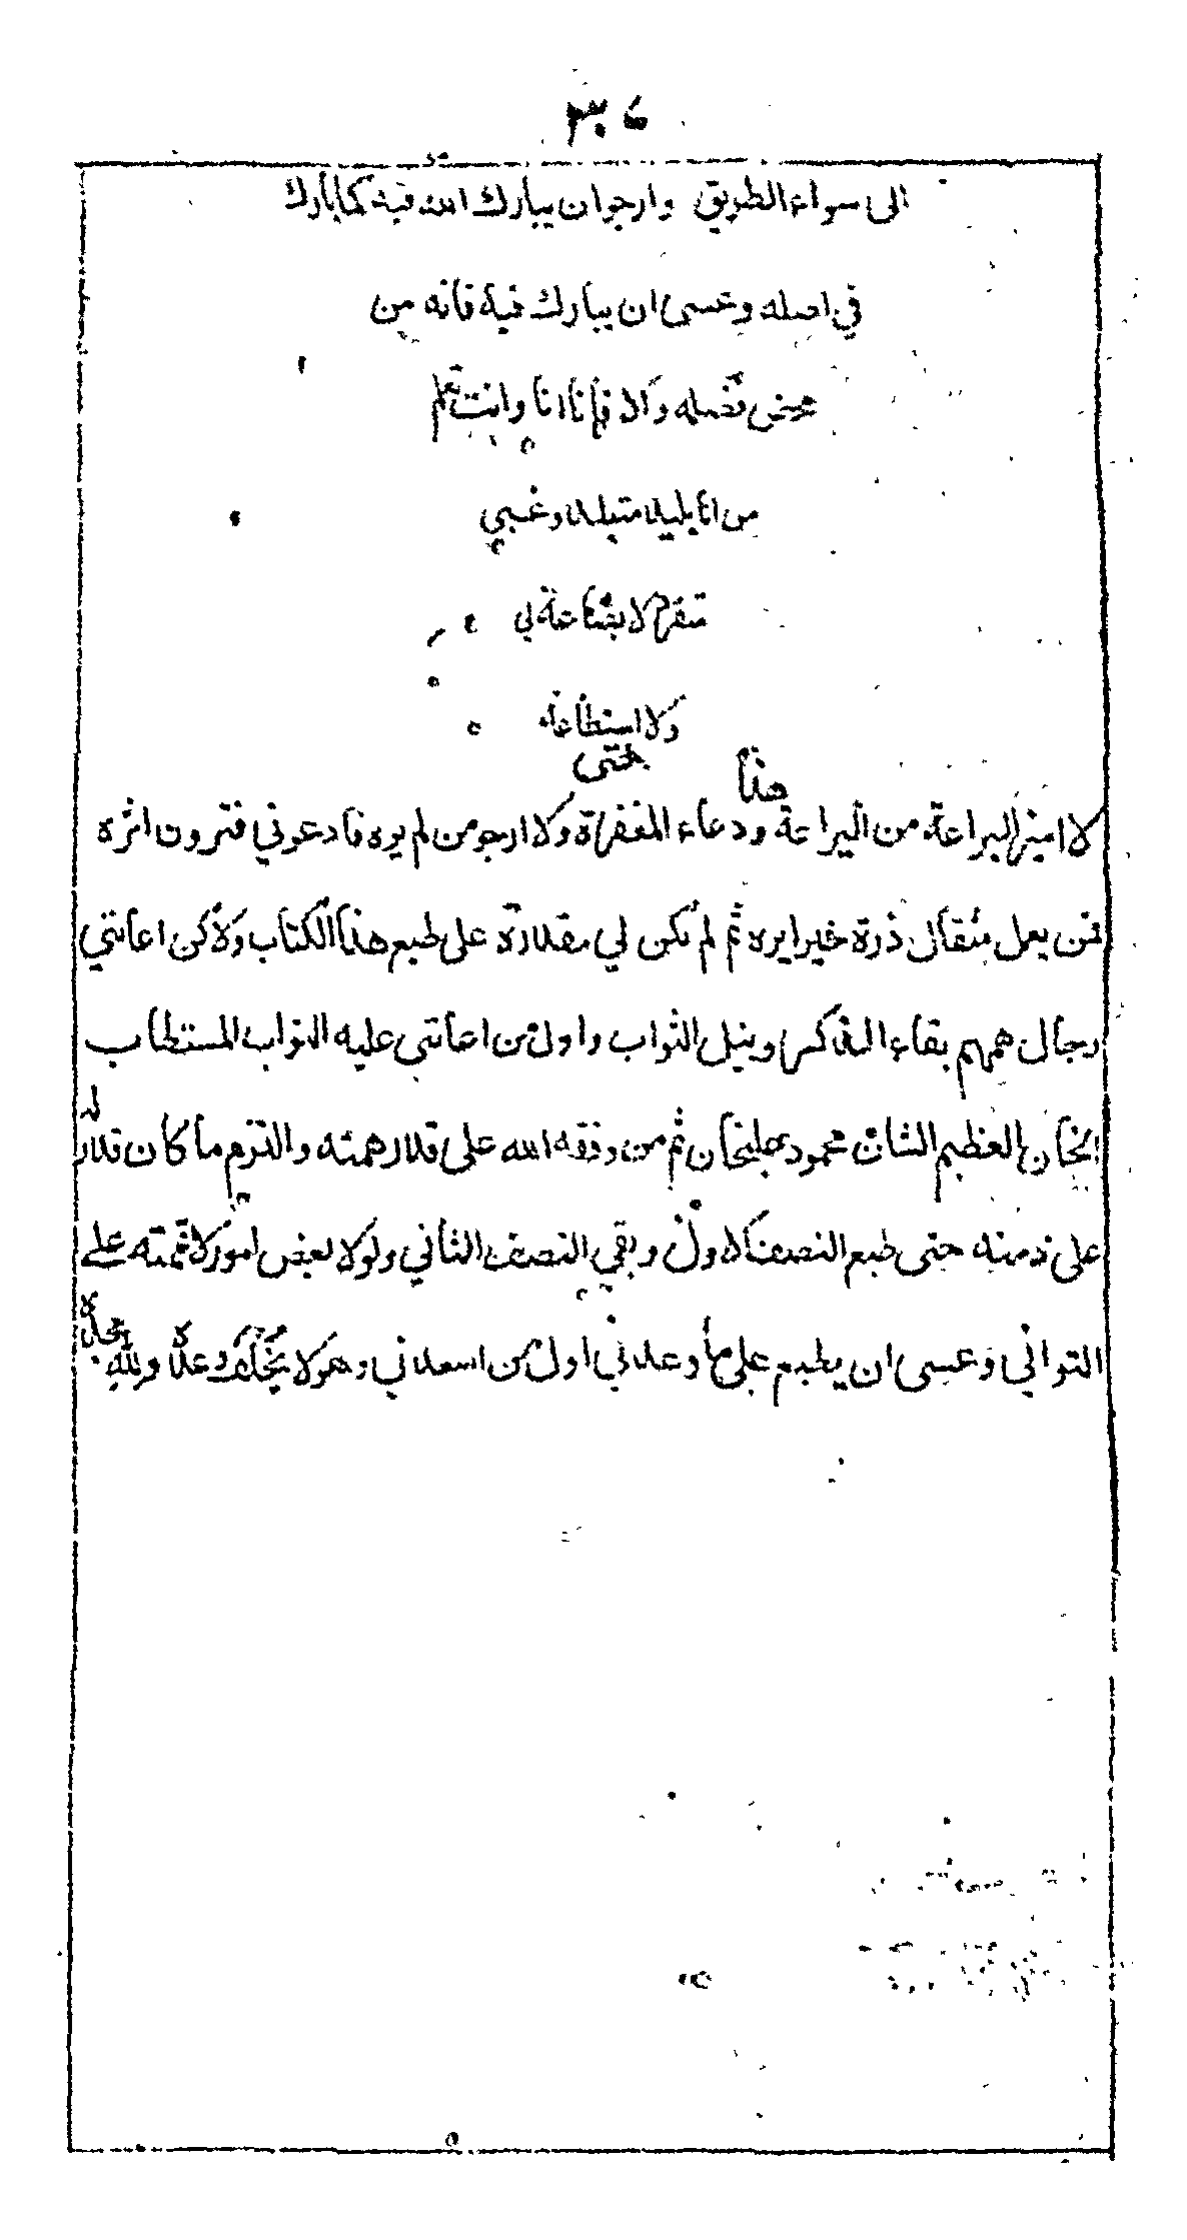 ٣٠٧
الى سواء الطريق وارجوان يبارك الله فيه كما بارك
في اصله وعسى ان يبارك فيه فانه من
محض فضله والا فانا انا وانت تعلم
من انا بليد متبلد وغبي
متقرم لا بضاعة لي
ولا استطاعة
حتى
هذا
لا اميز البراعة من اليراعة ودعاء المغفرة ولا ارجو من لم يره فادعوني فترون اثره
فمن يعمل مثقال ذرة خيرا يره ثم لم تكن لي مقدارة على طبع هذا الكتاب ولاكن اعانتني
رجال هممهم بقاء الذكر ونيل الثواب واول من اعانني عليه النواب المستطاب
الخان العظيم الشان محمود عليخان ثم من وفقه الله على قدر همته والتزم ما كان قدر له
على ذمته حتى طبع النصف الاول وبقي النصف الثاني ولولا بعض امور لاتممته على
التواني وعسى ان يطبع على ما وعدني اول من اسعدني وهو لا يخلف وعده ولله